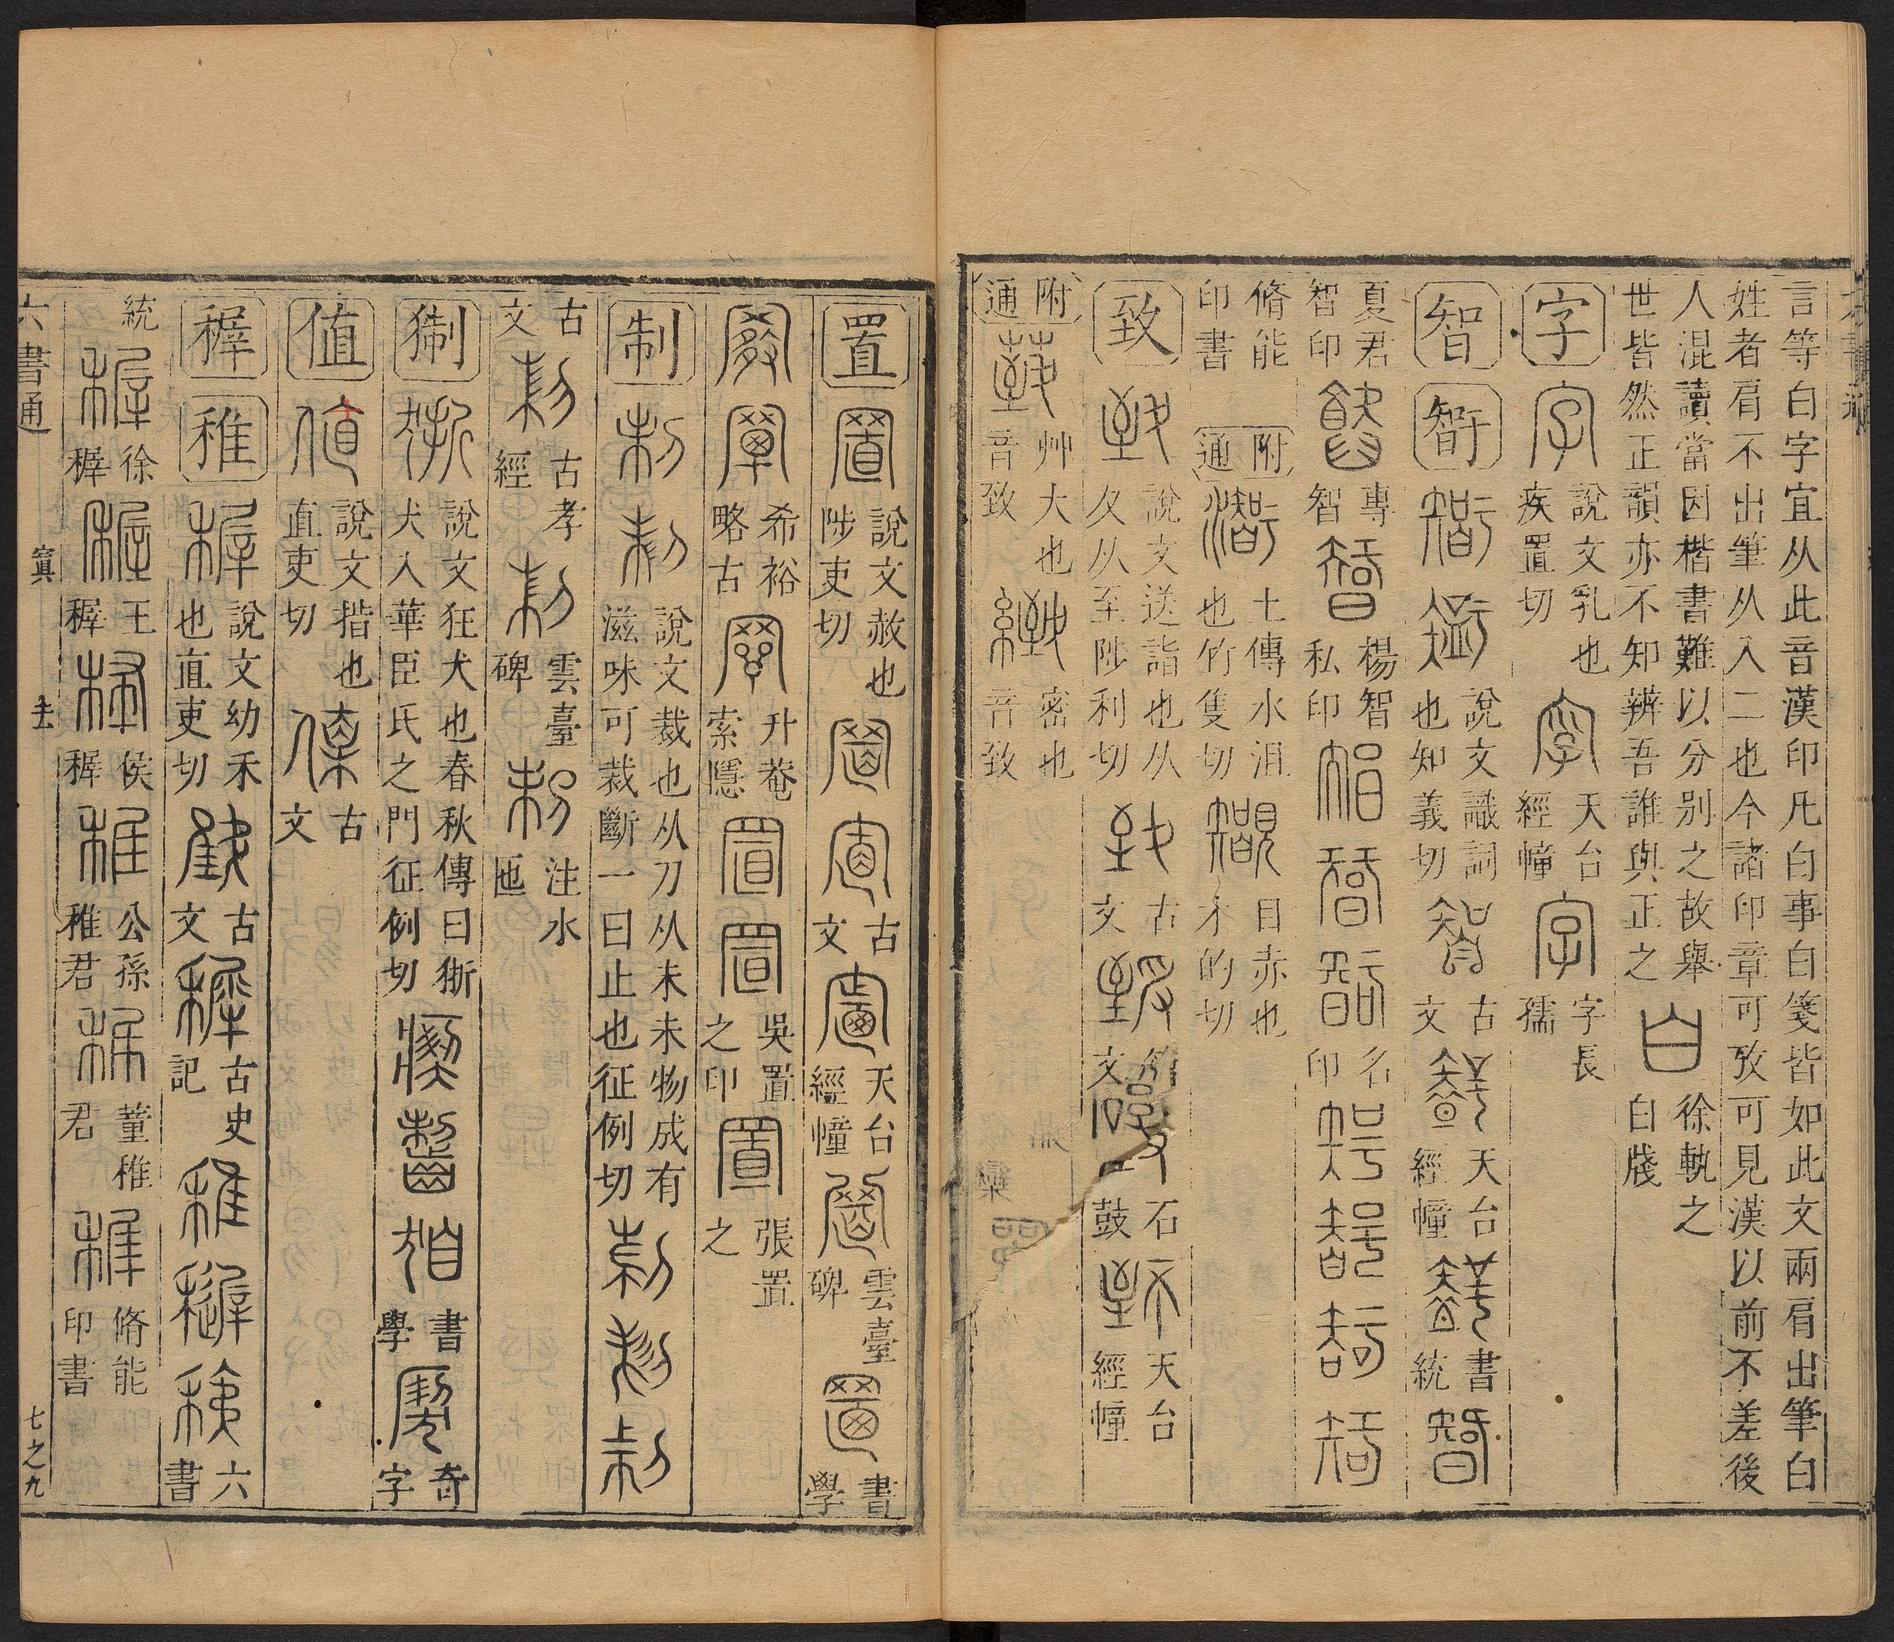 言等白字宜从此音漢印凡白事白箋皆如此文兩肩出筆白
姓者肩不出筆从入二也今諸印章可攷可見漢以前不差後
人混讀當因楷書難以分别之故舉 徐軌之
世皆然正韻亦不知辨吾誰與正之 白牋
字 說文乳也疾置切 天台經幢 字長孺
智 𣉻 說文識詞也知義切 古文 天台經幢 書統
夏君智印 專智 楊智私印 名印
脩能印書 附通 土傳水沮也竹隻切 目赤也才的切
致 說文送詣也从夂从至陟利切 古文 文 石鼓 天台經幢
附通 艸大也音致 密也音致
置 說文赦也陟吏切 古文 天台經幢 雲臺碑 書學
希裕略古 升菴索隱 吳置之印 張置之
制 說文裁也从刀从未未物成有滋味可裁斷一曰止也征例切
古文 古孝經 雲臺碑 注水匜
猘 說文狂犬也春秋傳曰狾犬入華臣氏之門征例切 書學 奇字
値 說文措也直吏切 古文
稺 稚 說文幼禾也直吏切 古文 古史記 六書
統 徐稺 王稺 侯稺 公孫稚君 董稚君 脩能印書
六書通 寘 七之九